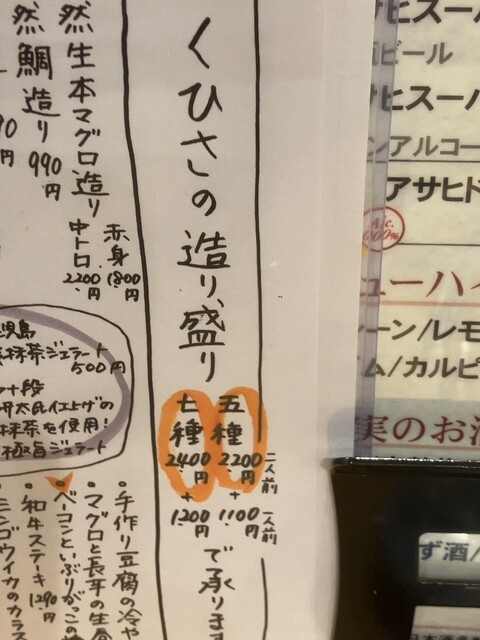 くひさの造り盛り
五種 2,200円 二人前 + 1100円 一人前
七種 2400円 + 1200円
で承ります
然生本マグロ造り
赤身 1800円
中トロ 2200円
然鯛造り 990円
抹茶ジェラート 500円
十段
抹茶を使用!
極旨ジェラート
・手作り豆腐の冷や
・マグロと長芋の生
・ベーコンといぶりがっこの
・和牛ステーキ 1290円
ミンゴウイカのカラス
サヒスーパ
ビール
サヒスーパ
ンアルコー
アサヒド
Alc. 0.00%
ューハイ
ーン/レモ
ム/カルピ
実のお酒
ず酒/